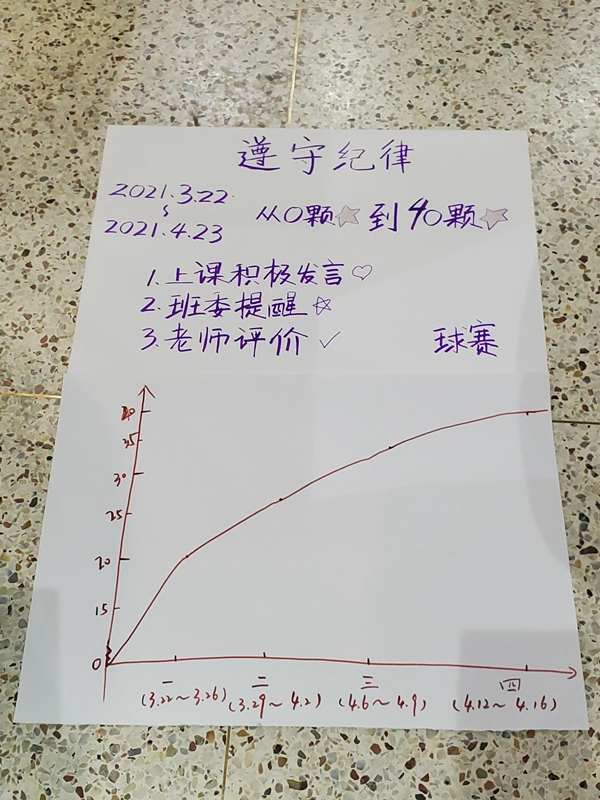 遵守纪律
2021.3.22
~
2021.4.23
从0颗☆到40颗☆
1.上课积极发言♡
2.班委提醒☆
3.老师评价✓
球赛
40
35
30
25
20
15
0
一 二 三 四
(3.22~3.26) (3.29~4.2) (4.6~4.9) (4.12~4.16)